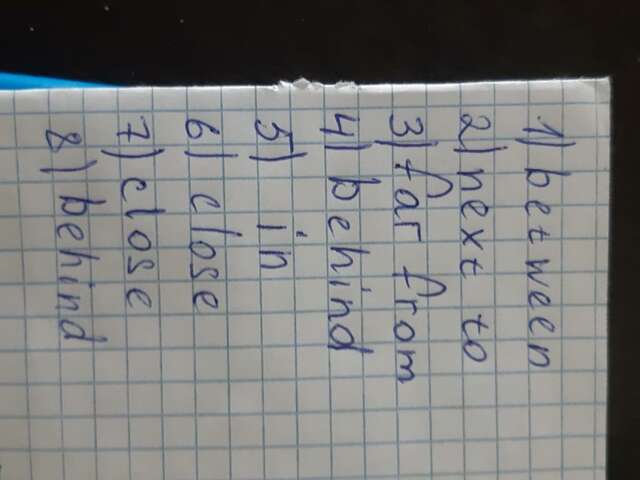 1) between
2) next to
3) far from
4) behind
5) in
6) close
7) close
8) behind